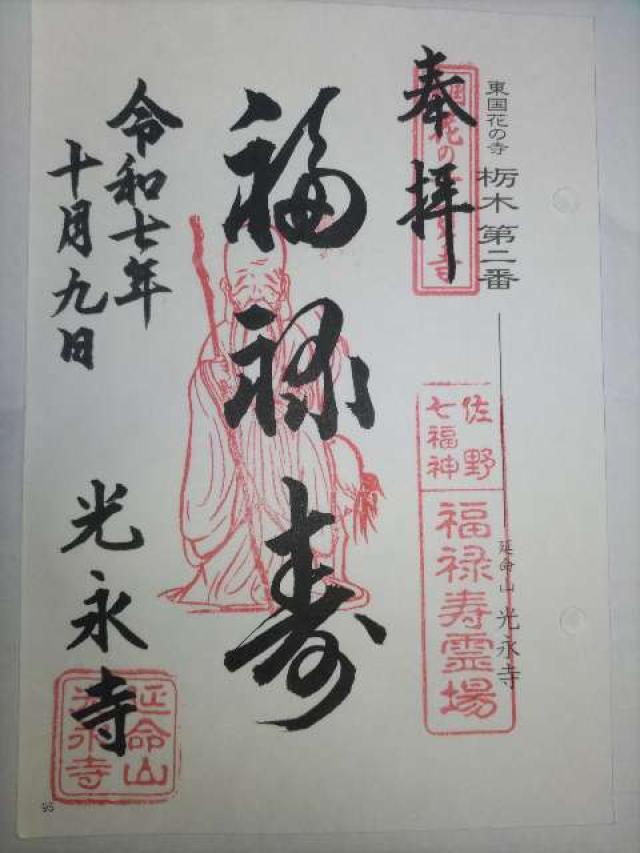 東国花の寺 栃木 第二番
延命山 光永寺
奉拝
佐野
七福神
福禄寿霊場
福禄寿
令和七年
十月九日
光永寺
延命山
光永寺
95